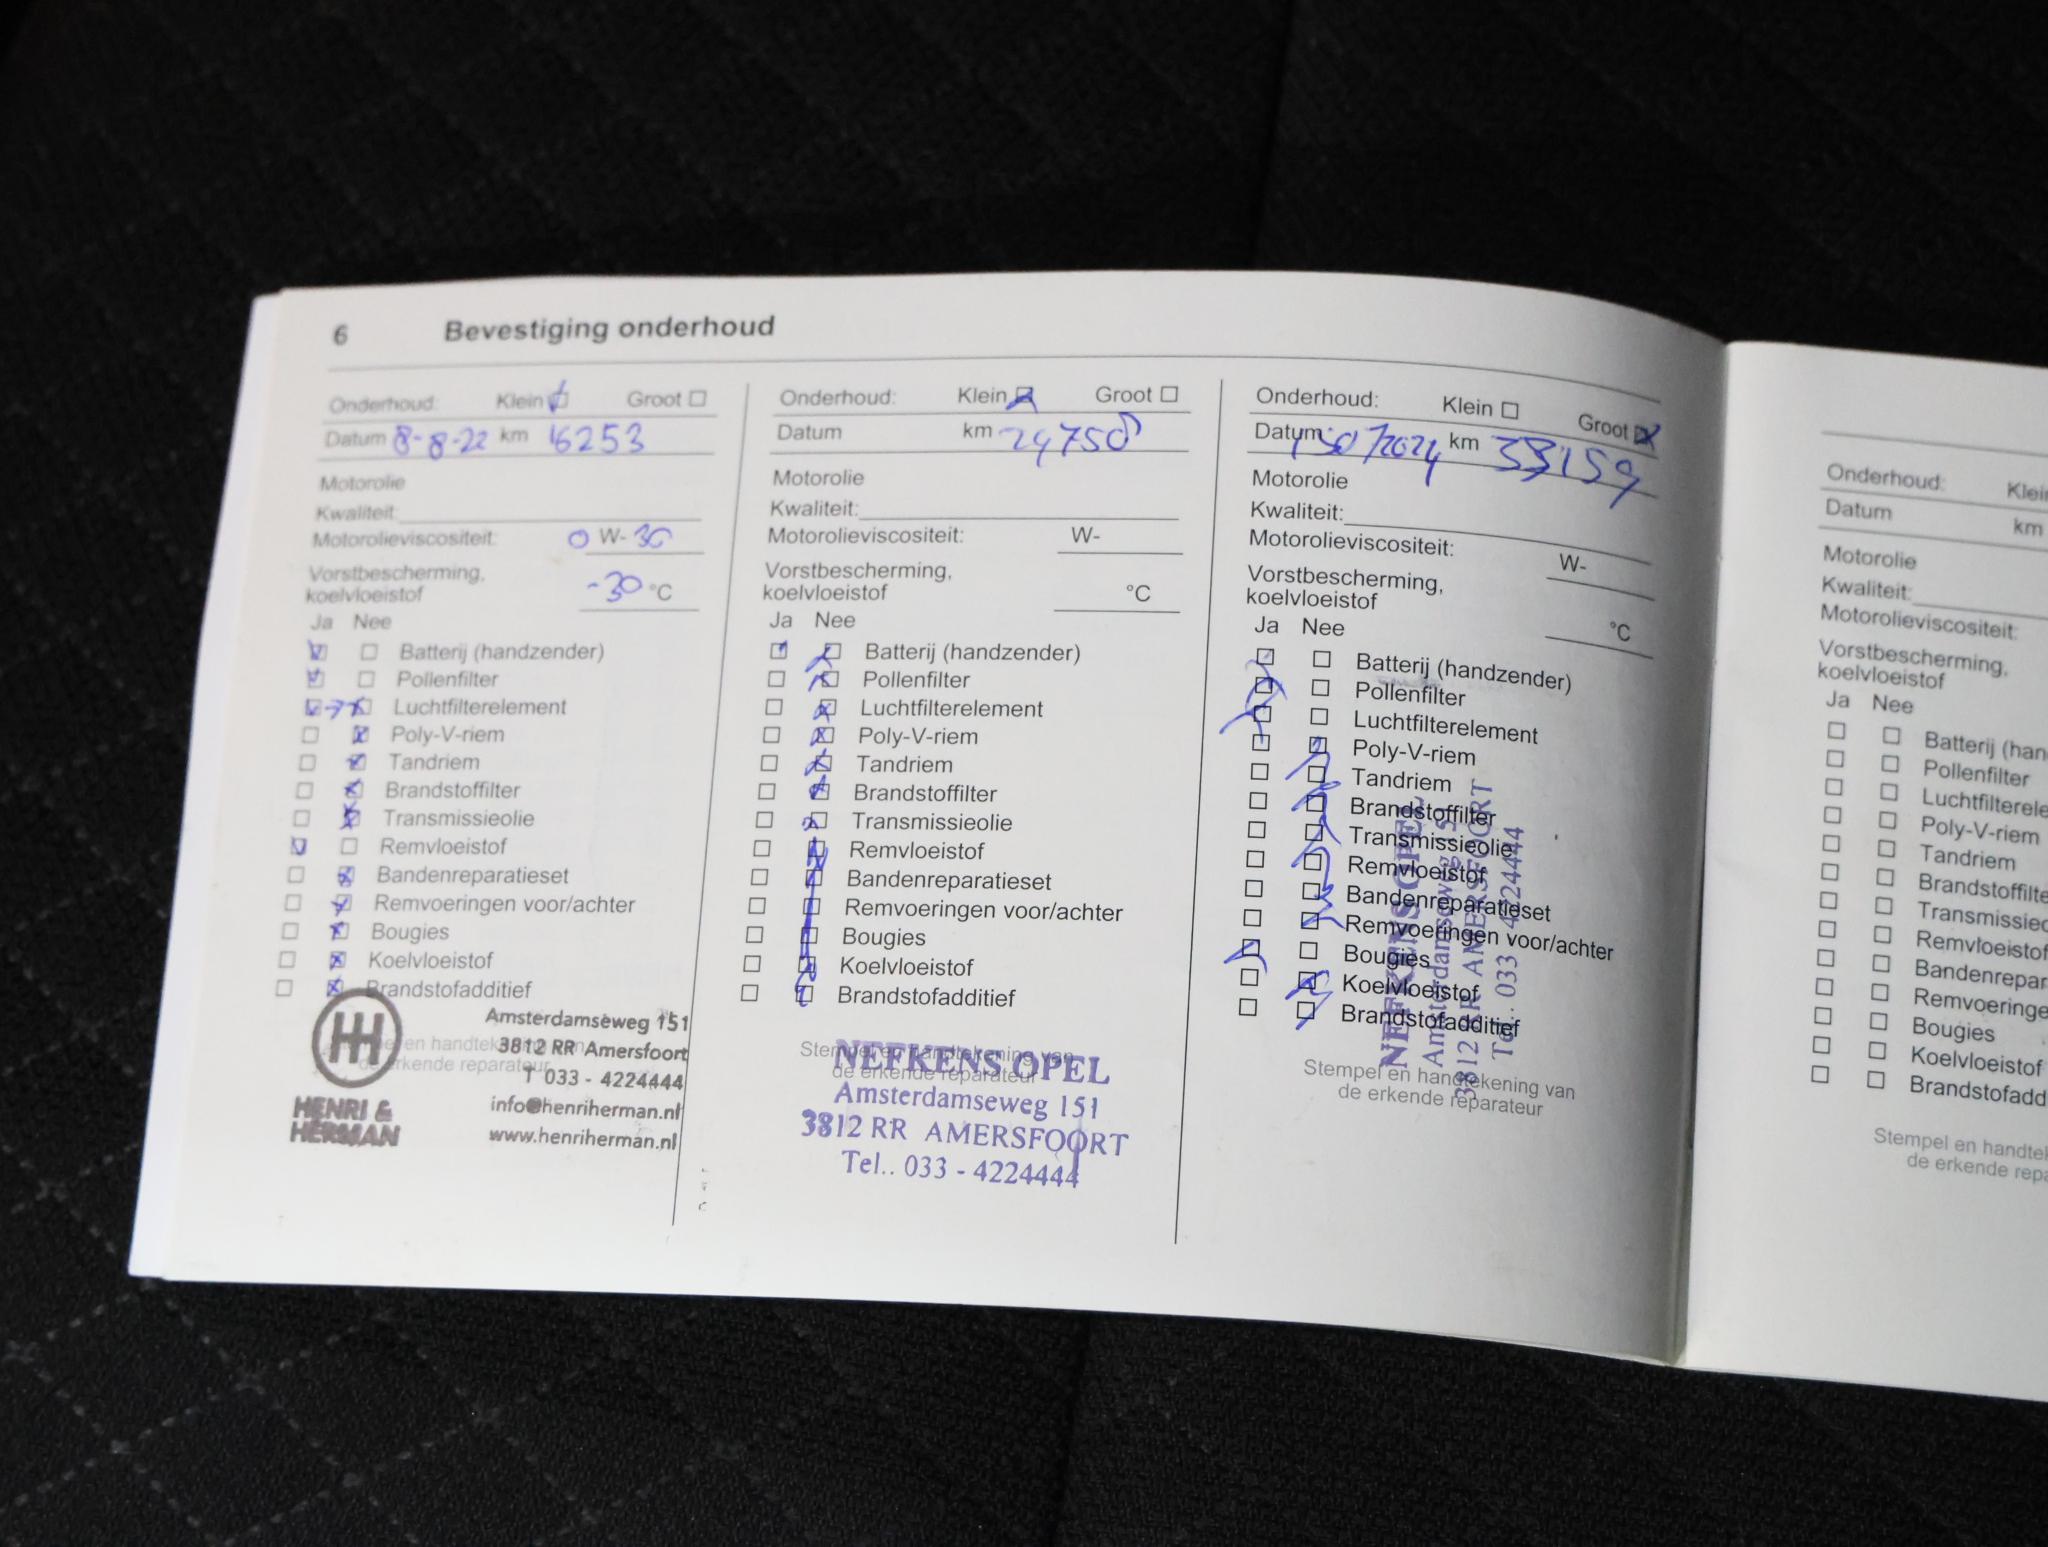 6 Bevestiging onderhoud
Onderhoud: Klein Groot
Datum 8-8-22 km 16253
Motorolie
Kwaliteit:
Motorolieviscositeit: 0 W-30
Vorstbescherming,
koelvloeistof -30 °C
Ja Nee
Batterij (handzender)
Pollenfilter
Luchtfilterelement
Poly-V-riem
Tandriem
Brandstoffilter
Transmissieolie
Remvloeistof
Bandenreparatieset
Remvoeringen voor/achter
Bougies
Koelvloeistof
Brandstofadditief
HENRI &
HERMAN
Amsterdamseweg 151
3812 RR Amersfoort
T 033 - 4224444
info@henriherman.nl
www.henriherman.nl
Onderhoud: Klein Groot
Datum km 24758
Motorolie
Kwaliteit:
Motorolieviscositeit: W-
Vorstbescherming,
koelvloeistof °C
Ja Nee
Batterij (handzender)
Pollenfilter
Luchtfilterelement
Poly-V-riem
Tandriem
Brandstoffilter
Transmissieolie
Remvloeistof
Bandenreparatieset
Remvoeringen voor/achter
Bougies
Koelvloeistof
Brandstofadditief
Stempel en handtekening van
de erkende reparateur
NEFKENS OPEL
Amsterdamseweg 151
3812 RR AMERSFOORT
Tel.. 033 - 4224444
Onderhoud: Klein Groot
Datum km 33159
Motorolie
Kwaliteit:
Motorolieviscositeit: W-
Vorstbescherming,
koelvloeistof °C
Ja Nee
Batterij (handzender)
Pollenfilter
Luchtfilterelement
Poly-V-riem
Tandriem
Brandstoffilter
Transmissieolie
Remvloeistof
Bandenreparatieset
Remvoeringen voor/achter
Bougies
Koelvloeistof
Brandstofadditief
NEFKENS OPEL
Amsterdamseweg 151
3812 RR AMERSFOORT
Tel.. 033 - 4224444
Stempel en handtekening van
de erkende reparateur
Onderhoud: Klein
Datum km
Motorolie
Kwaliteit:
Motorolieviscositeit:
Vorstbescherming,
koelvloeistof
Ja Nee
Batterij (han
Pollenfilter
Luchtfilterele
Poly-V-riem
Tandriem
Brandstoffilte
Transmissieo
Remvloeistof
Bandenrepar
Remvoeringe
Bougies
Koelvloeistof
Brandstofadd
Stempel en handtek
de erkende repa